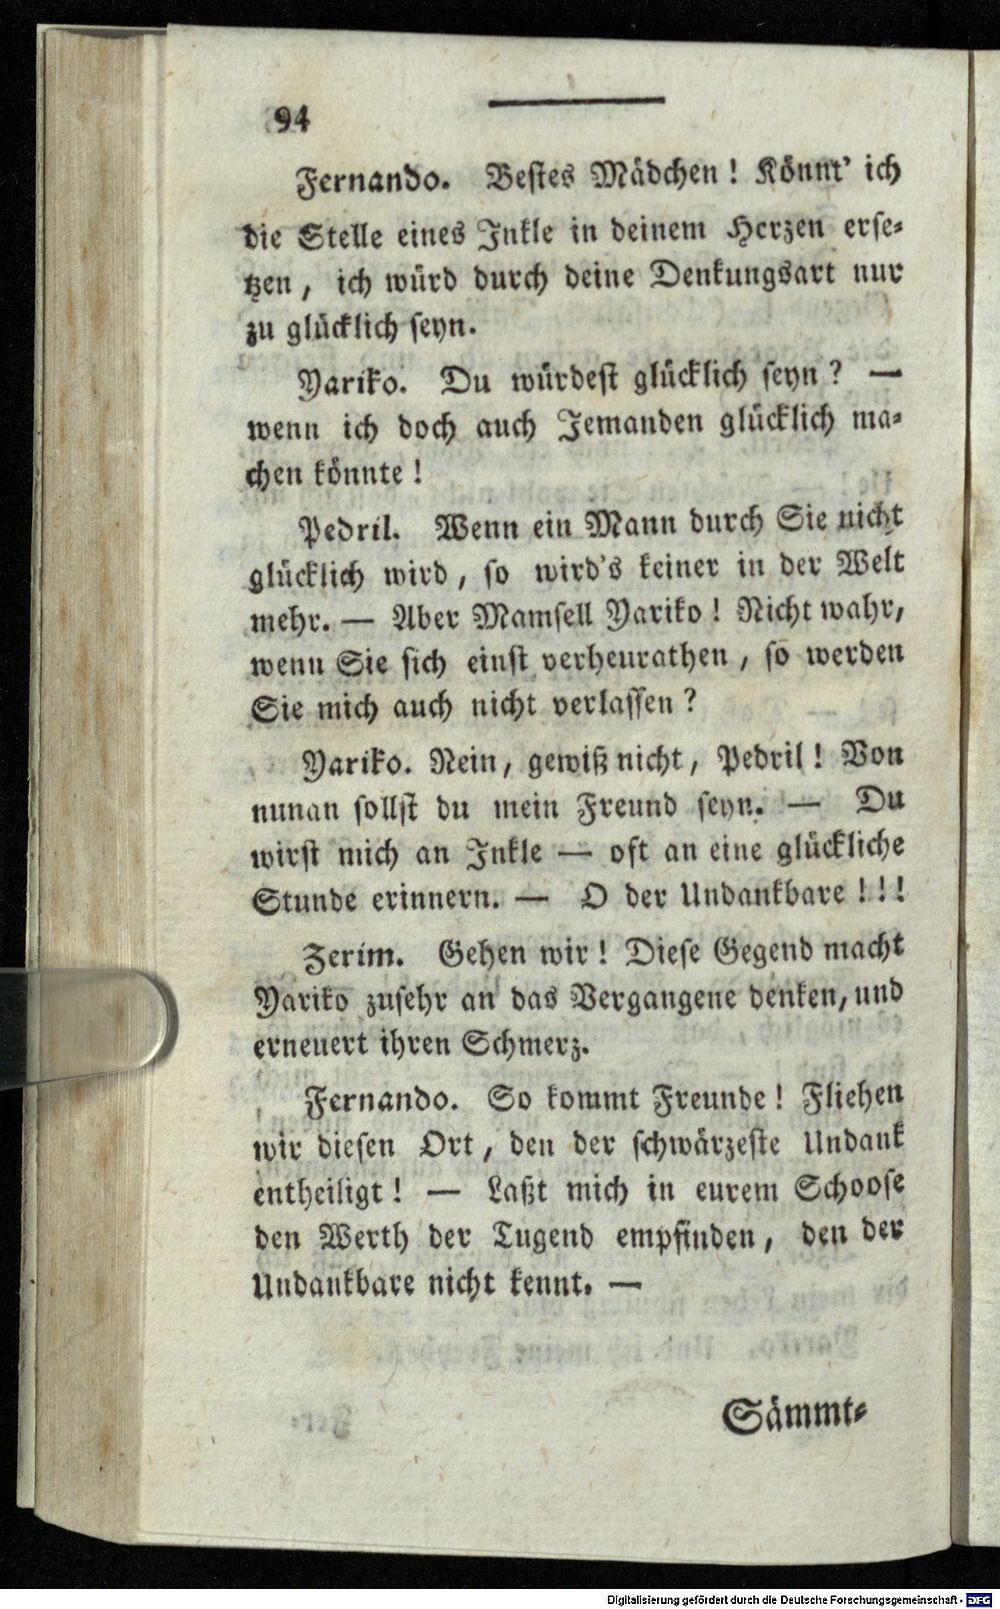 94
Fernando. Bestes Mädchen! Könnt' ich
die Stelle eines Inkle in deinem Herzen erse-
tzen, ich würd durch deine Denkungsart nur
zu glücklich seyn.
Yariko. Du würdest glücklich seyn? —
wenn ich doch auch Jemanden glücklich ma-
chen könnte!
Pedril. Wenn ein Mann durch Sie nicht
glücklich wird, so wird's keiner in der Welt
mehr. — Aber Mamsell Yariko! Nicht wahr,
wenn Sie sich einst verheurathen, so werden
Sie mich auch nicht verlassen?
Yariko. Nein, gewiß nicht, Pedril! Von
nunan sollst du mein Freund seyn. — Du
wirst mich an Inkle — oft an eine glückliche
Stunde erinnern. — O der Undankbare!!!
Zerim. Gehen wir! Diese Gegend macht
Yariko zusehr an das Vergangene denken, und
erneuert ihren Schmerz.
Fernando. So kommt Freunde! Fliehen
wir diesen Ort, den der schwärzeste Undank
entheiligt! — Laßt mich in eurem Schoose
den Werth der Tugend empfinden, den der
Undankbare nicht kennt. —
Sämmt-
Digitalisierung gefördert durch die Deutsche Forschungsgemeinschaft - DFG